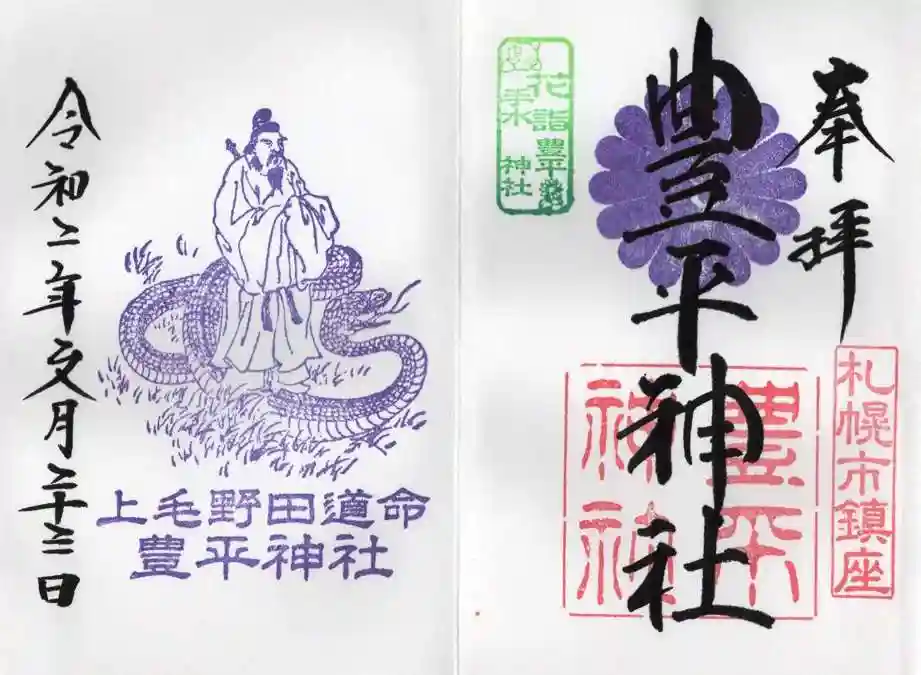 奉拝
豊平神社
札幌市鎮座
豊平
神社
花詣
手水
豊平
神社
令和二年文月二十三日
上毛野田道命
豊平神社